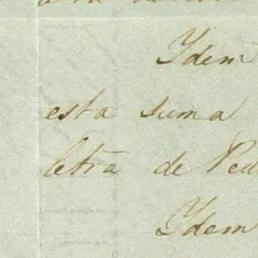 Ydem
esta suma
letra de
Ydem